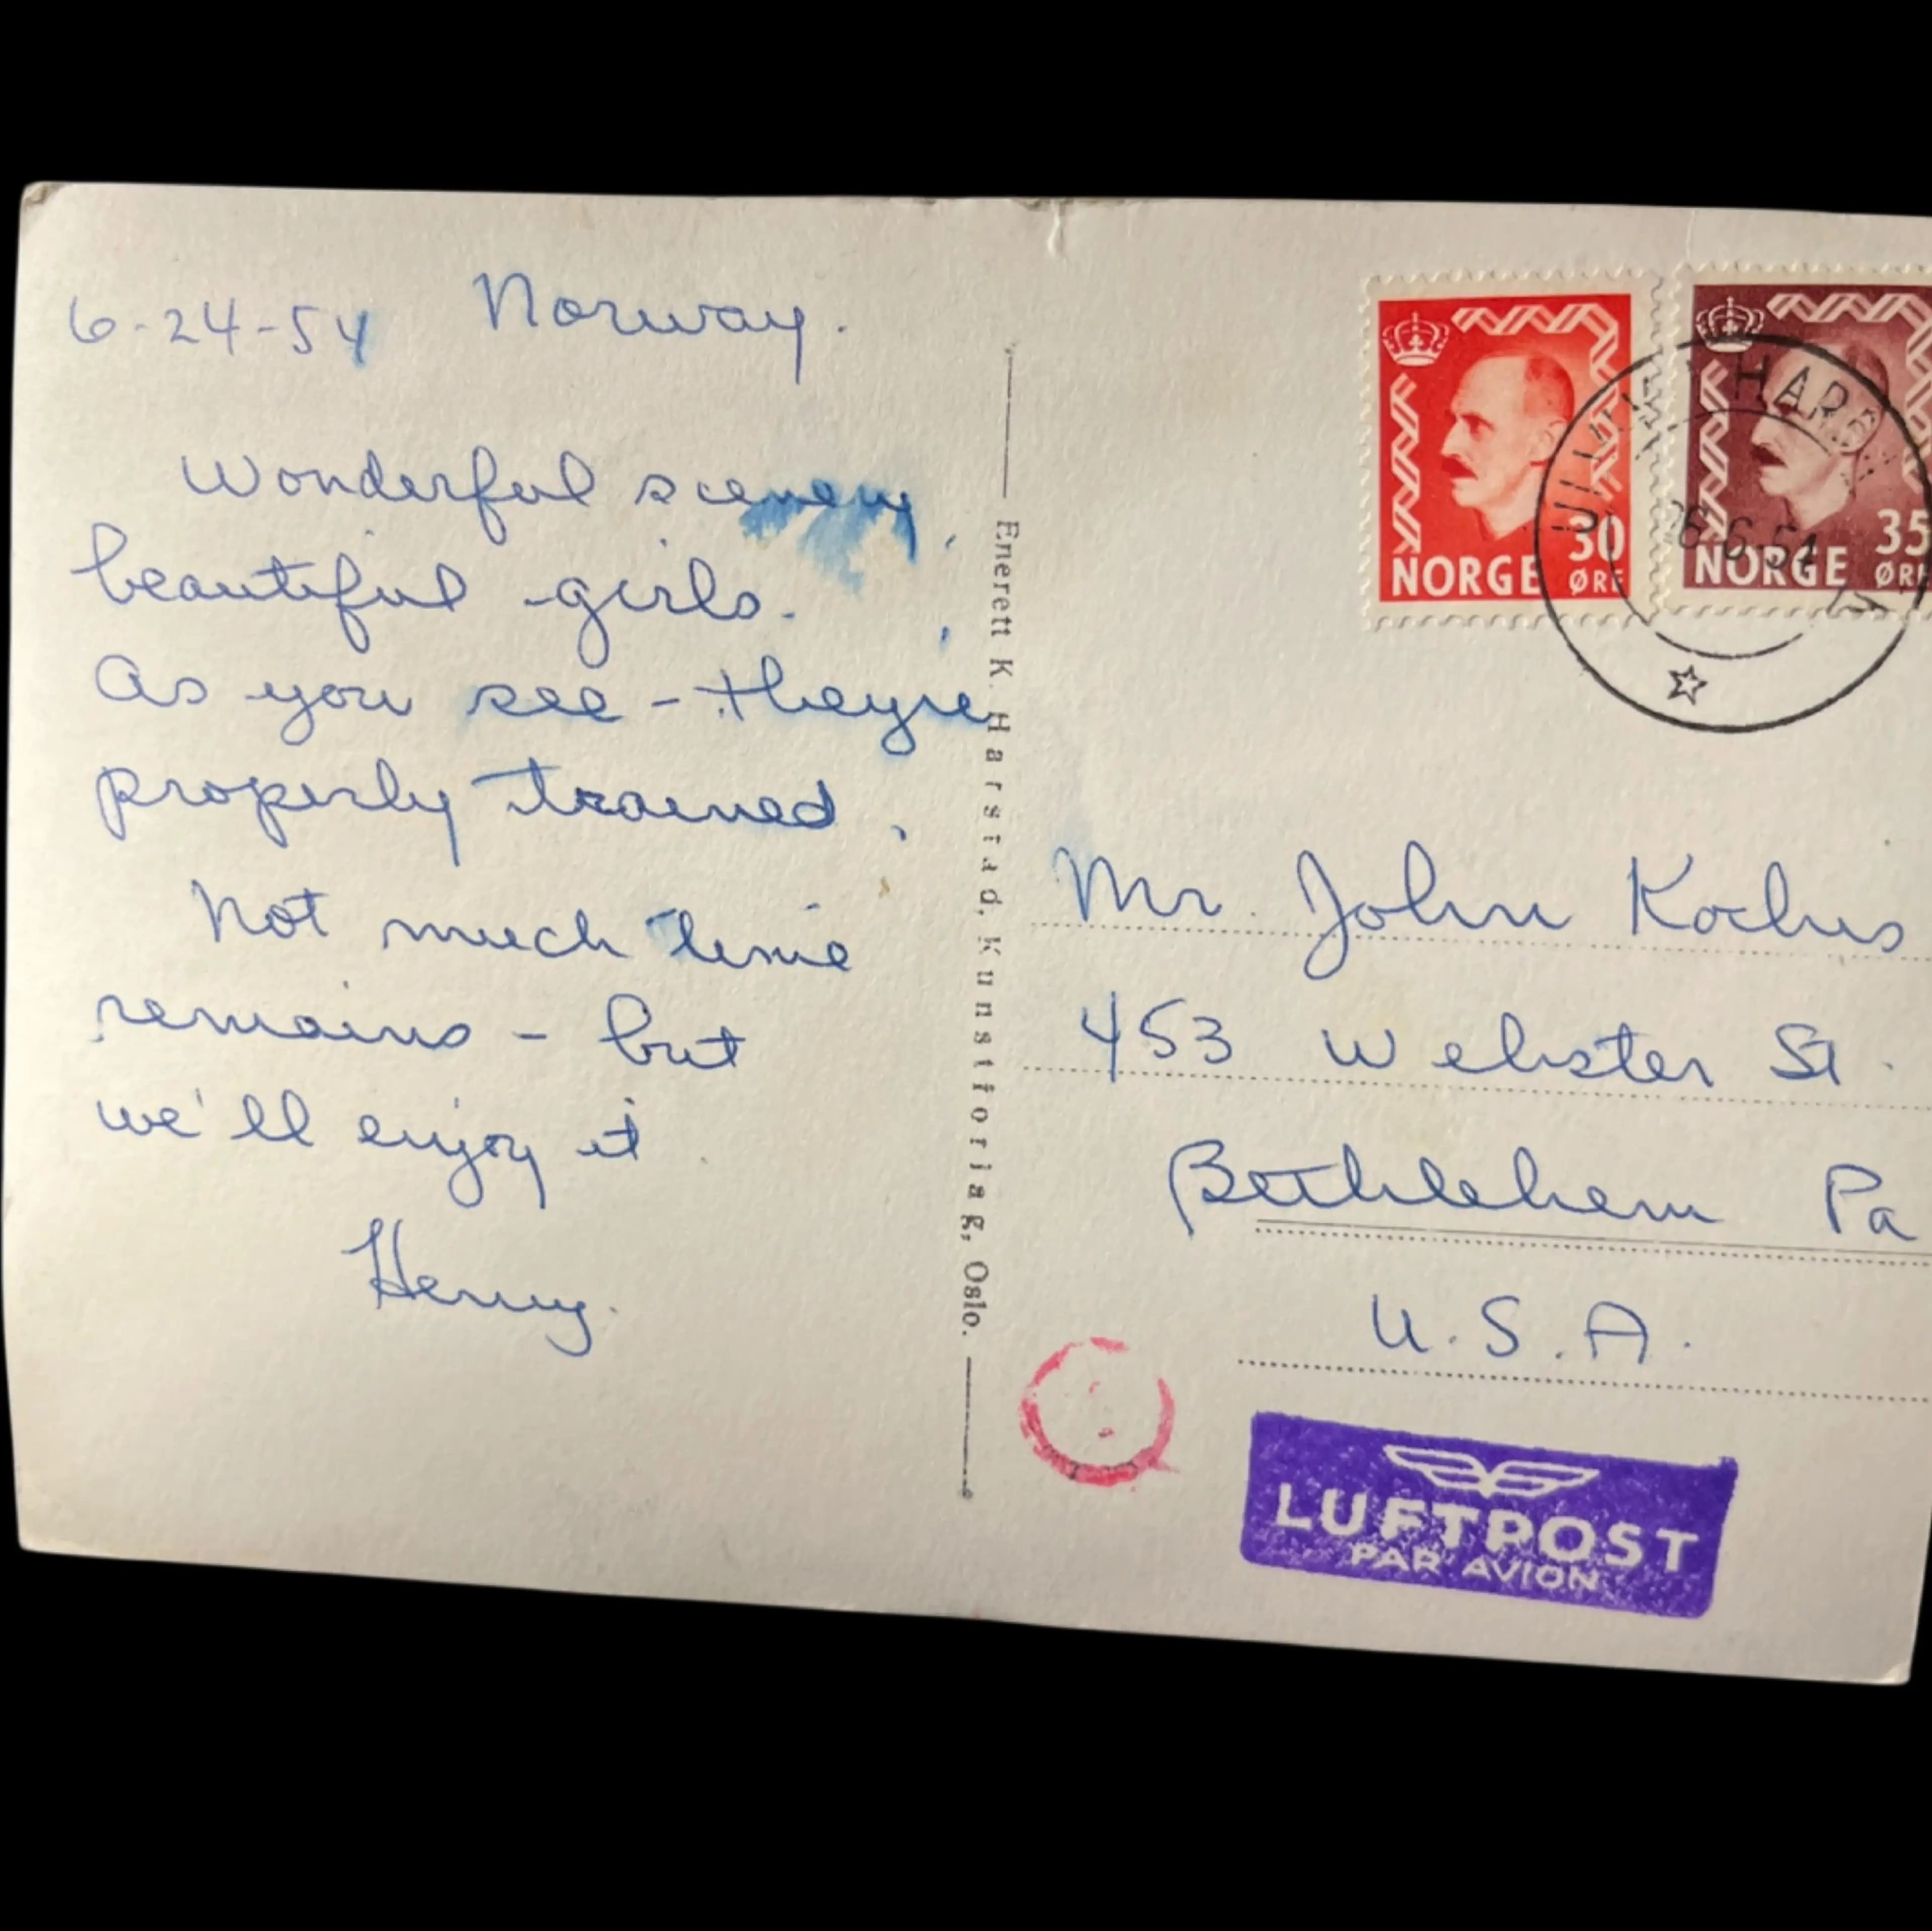 6-24-54 Norway.
Wonderful scenery,
beautiful girls.
As you see - they're
properly trained.
Not much time
remains - but
we'll enjoy it.
Henry.
Enerett K. Harstad, Kunstforlag, Oslo.
30
NORGE ØRE
35
NORGE ØRE
6.6.54
Mr. John Kochis
453 Webster St.
Bethlehem Pa
U.S.A.
LUFTPOST
PAR AVION